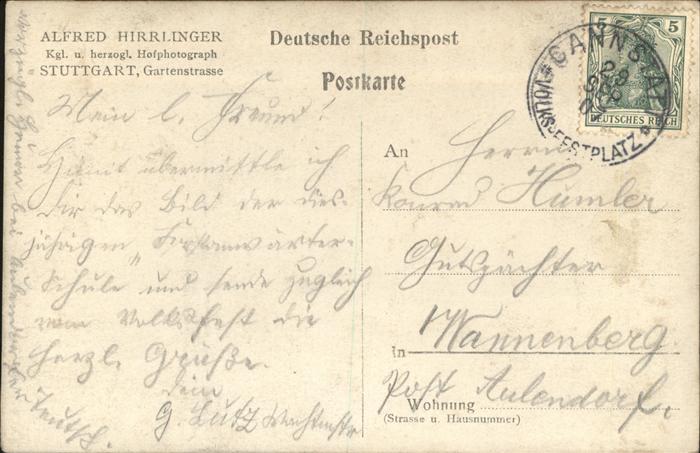 ALFRED HIRRLINGER
Kgl. u. herzogl. Hofphotograph
STUTTGART, Gartenstrasse
Deutsche Reichspost
Postkarte
5 5
DEUTSCHES REICH
CANNSTATT
VOLKSFESTPLATZ
Mein l. Freund!
Hiemit übermittle ich
Dir das Bild der dies-
jährigen „Forstanwärter-
Schule und sende zugleich
vom Volksfest die
herzl. Grüße.
Dein
G. Lutz
An Herrn
Konrad Humler
Gutspächter
in Wannenberg
Post Aulendorf.
Wohnung
(Strasse u. Hausnummer)